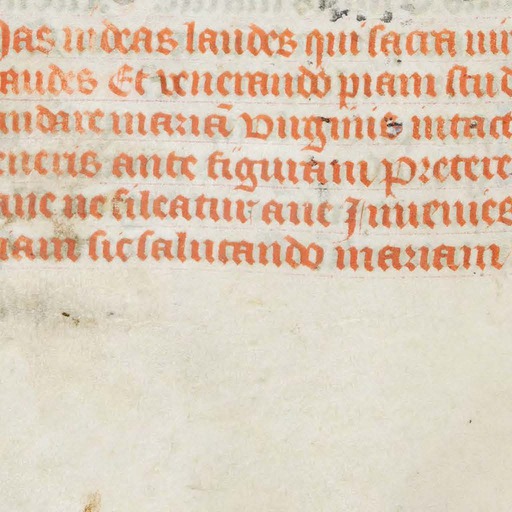 has videas laudes qui sacra
laudes Et venerando piam stud
undare mariā virginis intact
veneris ante figuram Pretere
ave ne sileatur ave Invenies
iam sic salutando mariam